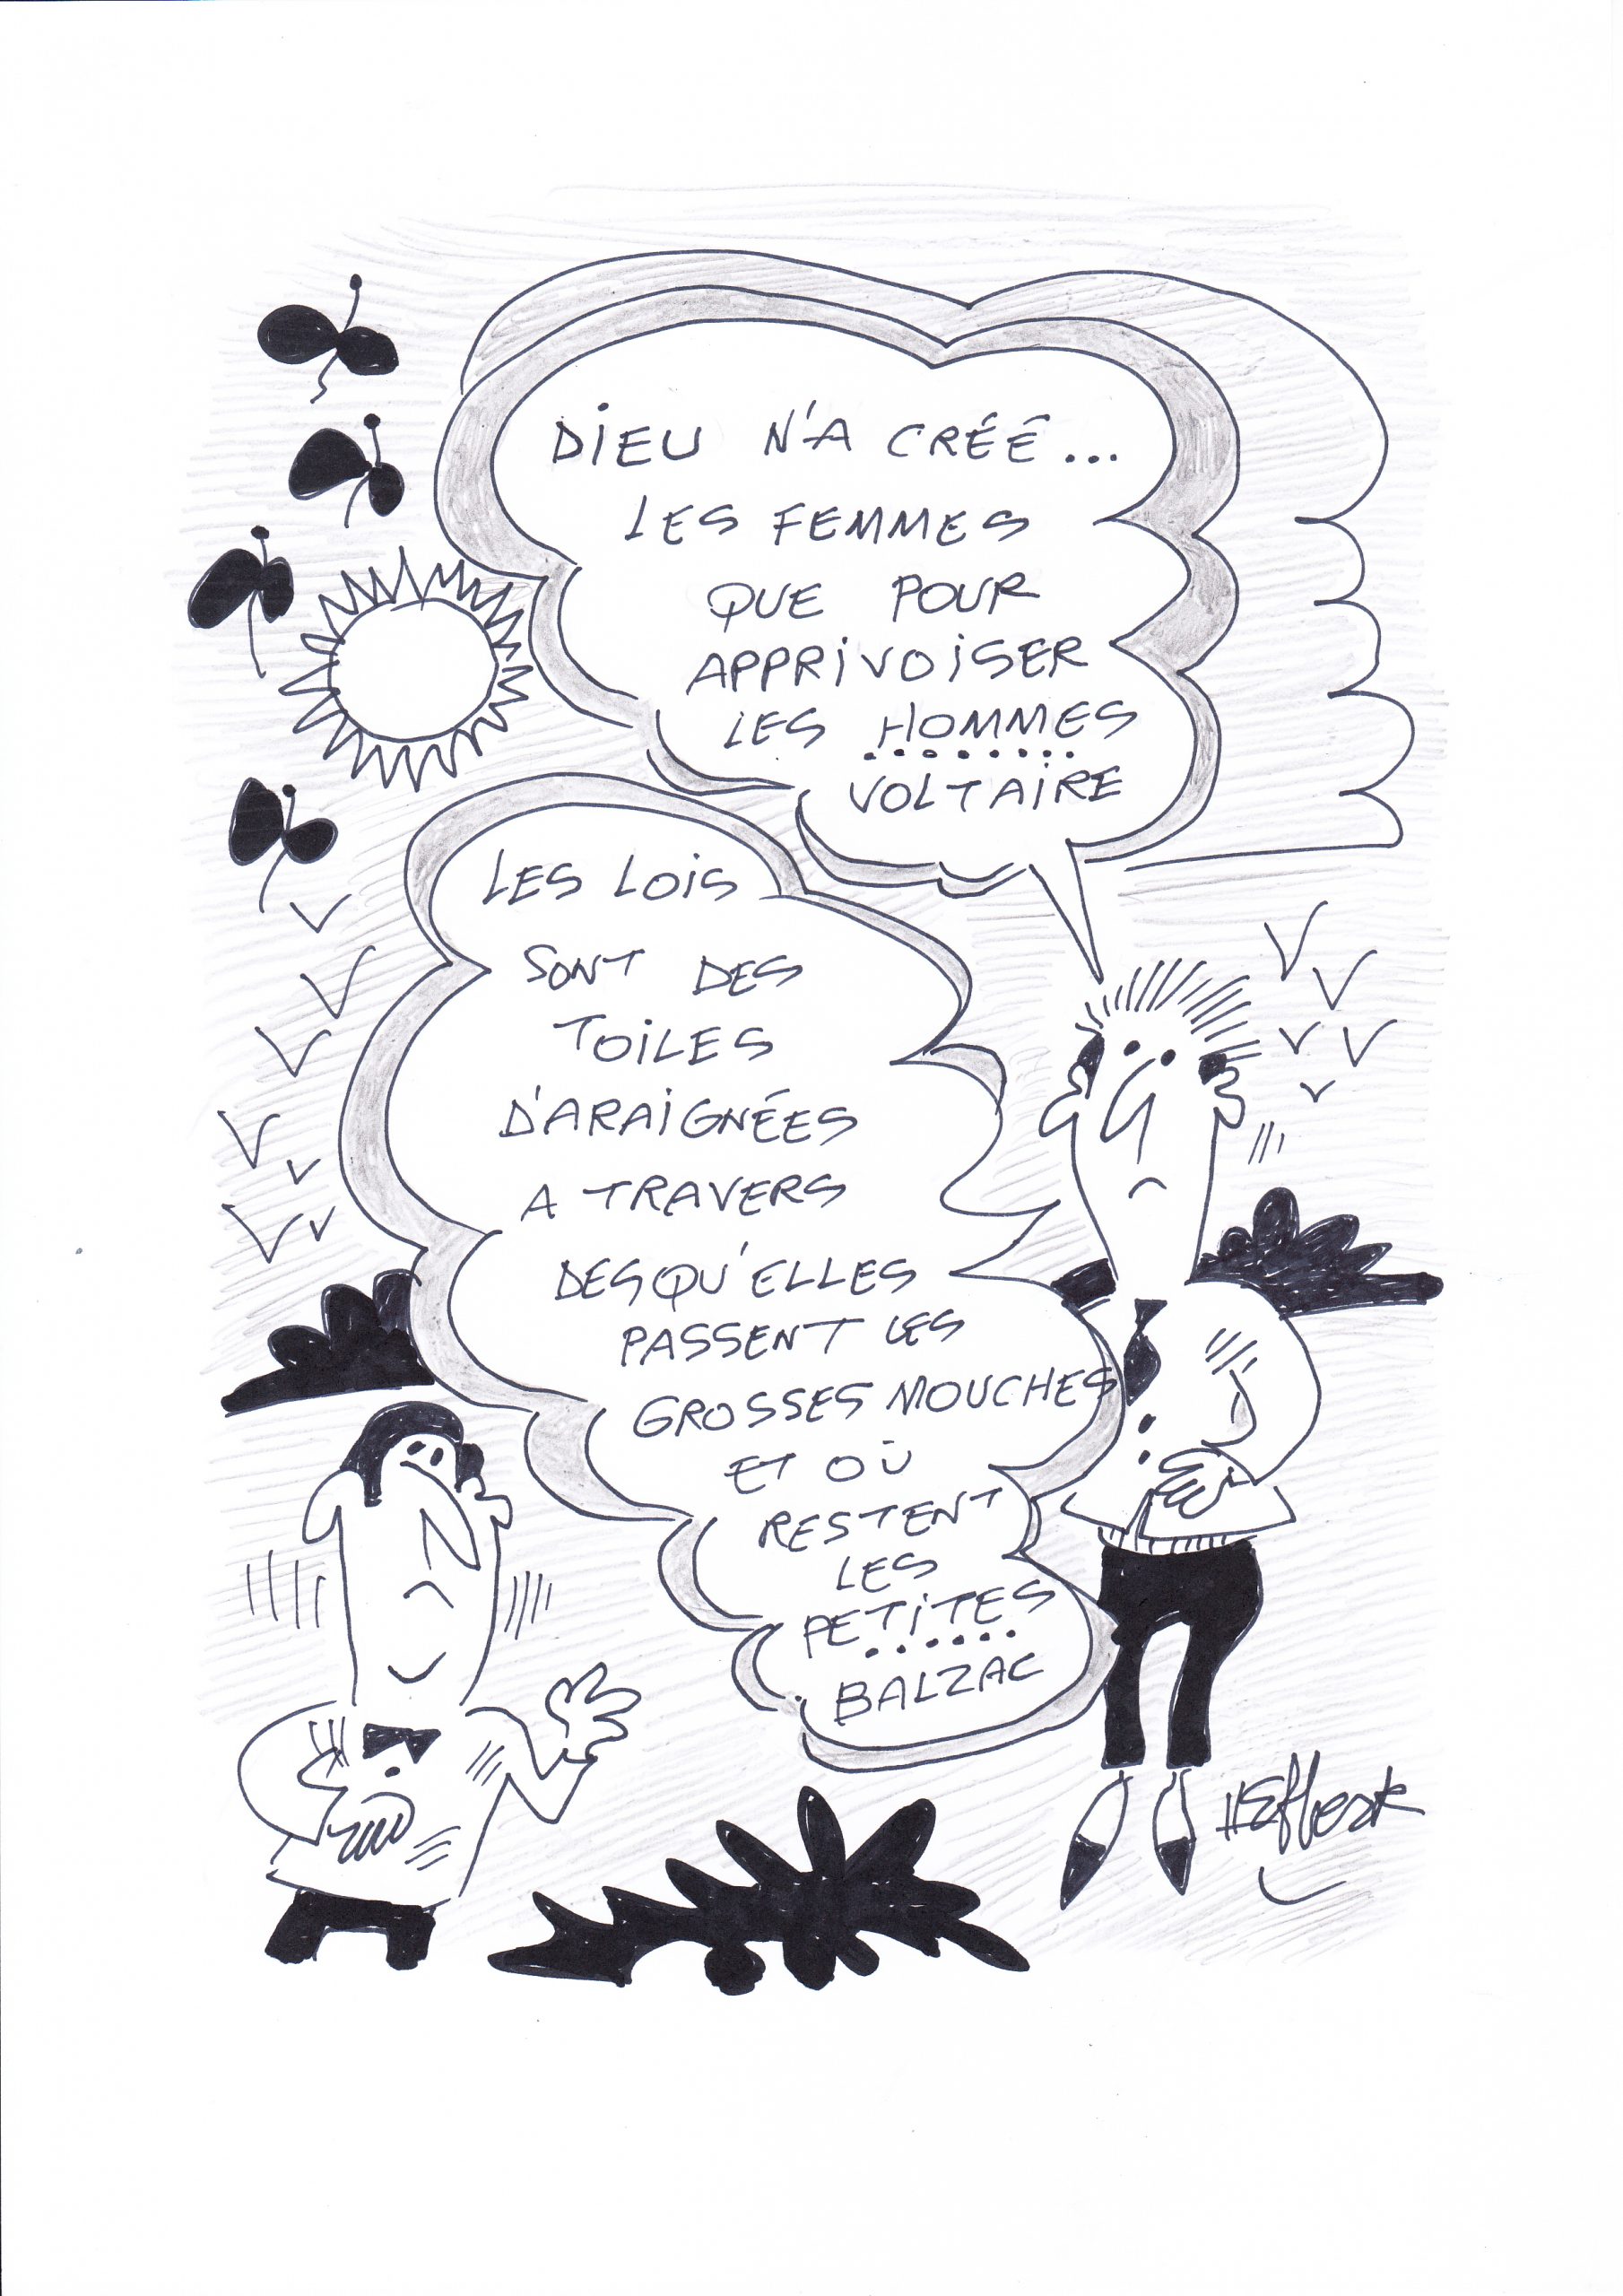 DIEU N'A CRÉÉ...
LES FEMMES
QUE POUR
APPRIVOISER
LES HOMMES
VOLTAIRE
LES LOIS
SONT DES
TOILES
D'ARAIGNÉES
A TRAVERS
DESQU'ELLES
PASSENT LES
GROSSES MOUCHES
ET OÙ
RESTENT
LES
PETITES
BALZAC